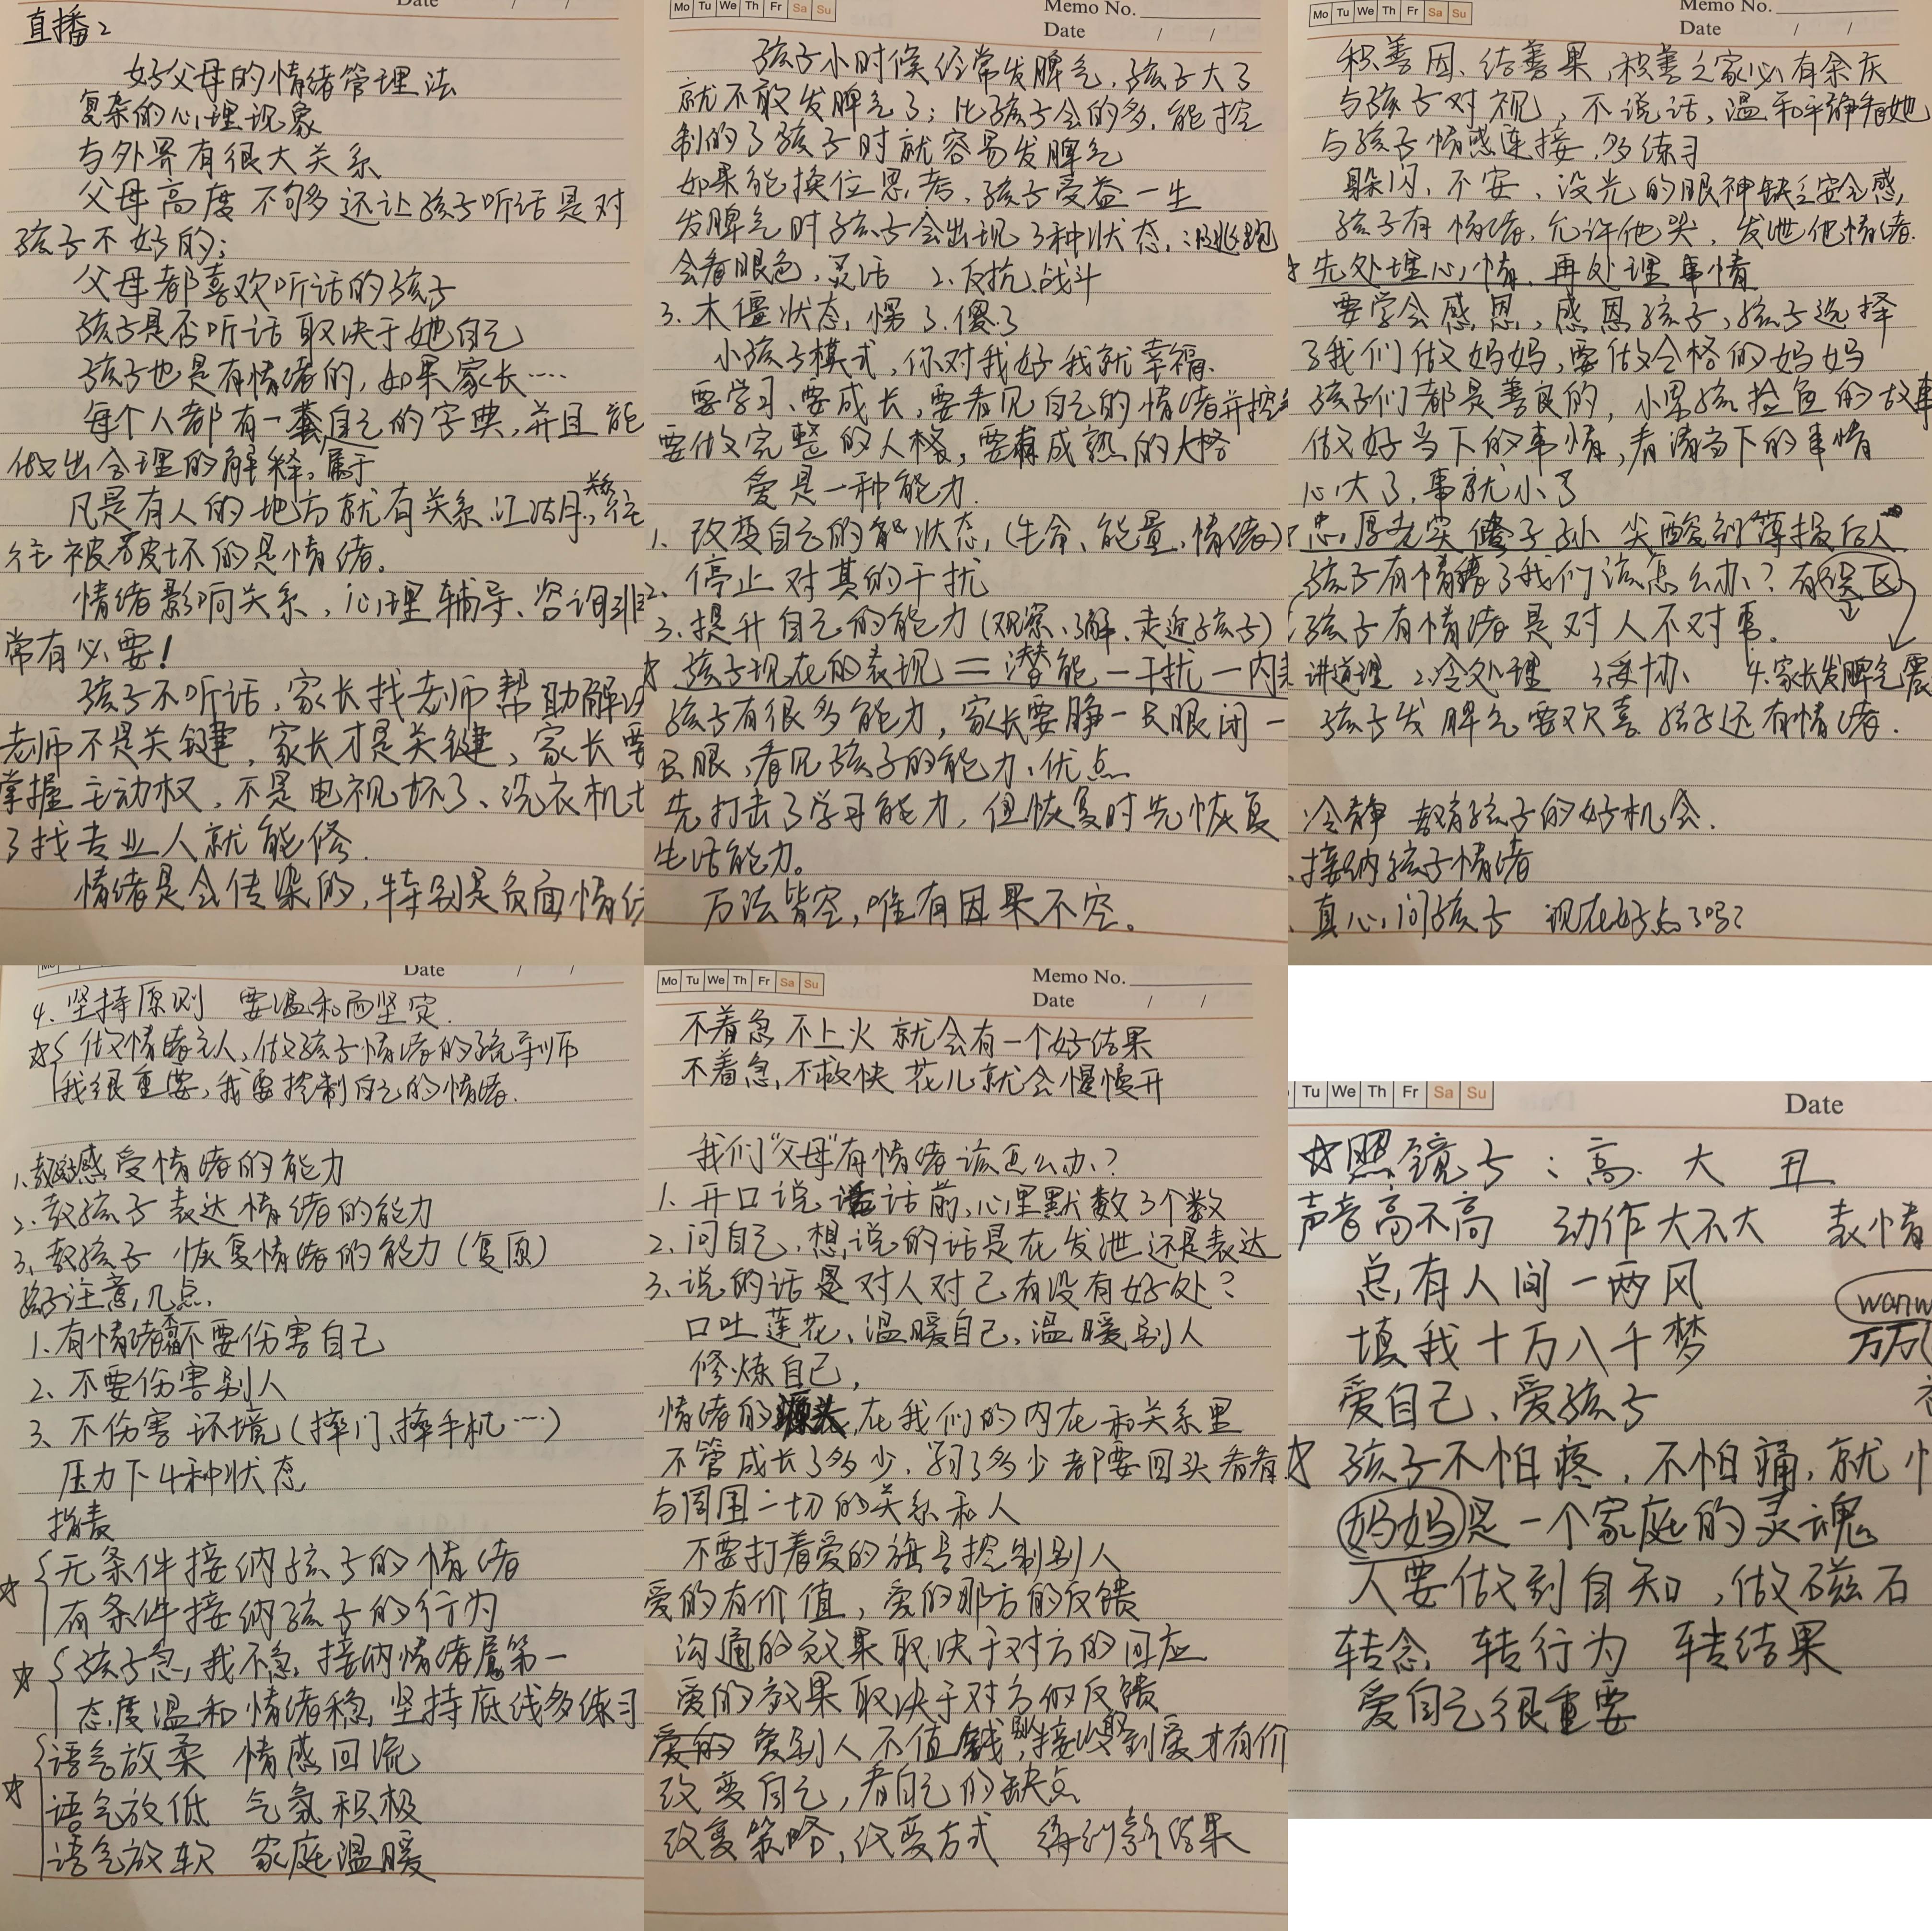 Date / /
直播2
好父母的情绪管理法
复杂的心理现象
与外界有很大关系
父母高度不够多还让孩子听话是对
孩子不好的;
父母都喜欢听话的孩子
孩子是否听话取决于她自己
孩子也是有情绪的,如果家长……
每个人都有一套自己的字典,并且能
做出合理的解释,属于
凡是有人的地方就有关系.江湖,关系往
往被破坏的是情绪。
情绪影响关系,心理辅导、咨询非
常有必要!
孩子不听话,家长找老师帮助解决
老师不是关键,家长才是关键,家长要
掌握主动权,不是电视坏了、洗衣机坏
了找专业人就能修.
情绪是会传染的,特别是负面情绪
Mo Tu We Th Fr Sa Su
Memo No.
Date / /
孩子小时候经常发脾气,孩子大了
就不敢发脾气了;比孩子会的多,能控
制的了孩子时就容易发脾气
如果能换位思考,孩子受益一生
发脾气时孩子会出现3种状态,:1.逃跑
会看眼色,灵活 2.反抗.战斗
3.木僵状态,愣了.傻了
小孩子模式,你对我好我就幸福.
要学习、要成长,要看见自己的情绪并控制
要做完整的人格,要有成熟的人格
爱是一种能力.
1、改变自己的状态,(生命、能量、情绪)
2、停止对其的干扰
3、提升自己的能力(观察、了解、走近孩子)
☆孩子现在的表现=潜能-干扰-内耗
孩子有很多能力,家长要睁一只眼闭一
只眼,看见孩子的能力、优点
先打击了学习能力,但恢复时先恢复
生活能力。
万法皆空,唯有因果不空。
Mo Tu We Th Fr Sa Su
Memo No.
Date / /
积善因、结善果,积善之家必有余庆
与孩子对视,不说话,温和平静看她
与孩子情感连接,多练习
躲闪、不安、没光的眼神缺乏安全感,
孩子有情绪,允许他哭,发泄他情绪.
☆先处理心情,再处理事情
要学会感恩,感恩孩子,孩子选择
了我们做妈妈,要做合格的妈妈
孩子们都是善良的,小男孩捡鱼的故事
做好当下的事情,看清当下的事情
心大了,事就小了
忠厚老实传子孙 尖酸刻薄损后人
孩子有情绪了我们该怎么办?有误区
孩子有情绪是对人不对事.
讲道理 2.冷处理 3.妥协 4.家长发脾气震
孩子发脾气要欢喜 孩子还有情绪.
冷静 教育孩子的好机会.
接纳孩子情绪
真心问孩子 现在好点了吗?
Date / /
4.坚持原则 要温和而坚定.
☆做情绪主人,做孩子情绪的疏导师
我很重要,我要控制自己的情绪.
1.教孩子感受情绪的能力
2.教孩子表达情绪的能力
3.教孩子恢复情绪的能力(复原)
孩子注意几点.
1.有情绪不要伤害自己
2、不要伤害别人
3、不伤害环境(摔门,摔手机……)
压力下4种状态
指责
☆无条件接纳孩子的情绪
有条件接纳孩子的行为
☆孩子急,我不急,接纳情绪属第一
态度温和情绪稳,坚持底线多练习
☆语气放柔 情感回流
语气放低 气氛积极
语气放软 家庭温暖
Mo Tu We Th Fr Sa Su
Memo No.
Date / /
不着急不上火就会有一个好结果
不着急,不求快 花儿就会慢慢开
我们"父母"有情绪该怎么办?
1.开口说话前,心里默数3个数
2.问自己,想说的话是在发泄还是表达
3.说的话是对人对己有没有好处?
口吐莲花、温暖自己,温暖别人
修炼自己,
情绪的源头,在我们的内在和关系里
不管成长了多少,学了多少都要回头看看
与周围一切的关系和人
不要打着爱的旗号控制别人
爱的有价值,爱的那方的反馈
沟通的效果取决于对方的回应
爱的效果取决于对方的反馈
爱别人不值钱,别人接收到爱才有价
改变自己,看自己的缺点
改变策略,改变方式 得到新结果
Tu We Th Fr Sa Su
Date
☆照镜子:高 大 丑
声音高不高 动作大不大 表情
总有人间一两风
填我十万八千梦
wanw
万万
爱自己、爱孩子
☆孩子不怕疼,不怕痛,就怕
妈妈是一个家庭的灵魂
人要做到自知,做磁石
转念 转行为 转结果
爱自己很重要